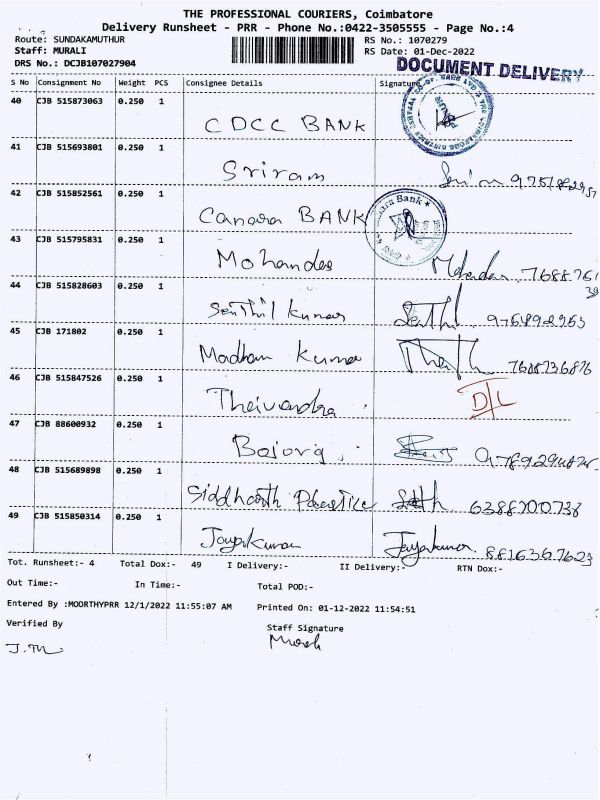 THE PROFESSIONAL COURIERS, Coimbatore
Delivery Runsheet - PRR - Phone No.:0422-3505555 - Page No.:4
Route: SUNDAKAMUTHUR RS No.: 1070279
Staff: MURALI RS Date: 01-Dec-2022
DRS No.: DCJB107027904 DOCUMENT DELIVERY
S No Consignment No Weight PCS Consignee Details Signature
40 CJB 515873063 0.250 1
CDCC BANK
41 CJB 515693801 0.250 1
Sriram
42 CJB 515852561 0.250 1
Canara BANK
43 CJB 515795831 0.250 1
Mohandas
44 CJB 515828603 0.250 1
Senthil kumar
45 CJB 171802 0.250 1
Madhan Kumar 7688736876
46 CJB 515847526 0.250 1
D/L
47 CJB 88600932 0.250 1
48 CJB 515689898 0.250 1
Siddharth 6388200738
49 CJB 515850314 0.250 1
Jayakumar Jayakumar 8816367623
Tot. Runsheet:- 4 Total Dox:- 49 I Delivery:- II Delivery:- RTN Dox:-
Out Time:- In Time:- Total POD:-
Entered By :MOORTHYPRR 12/1/2022 11:55:07 AM Printed On: 01-12-2022 11:54:51
Verified By Staff Signature